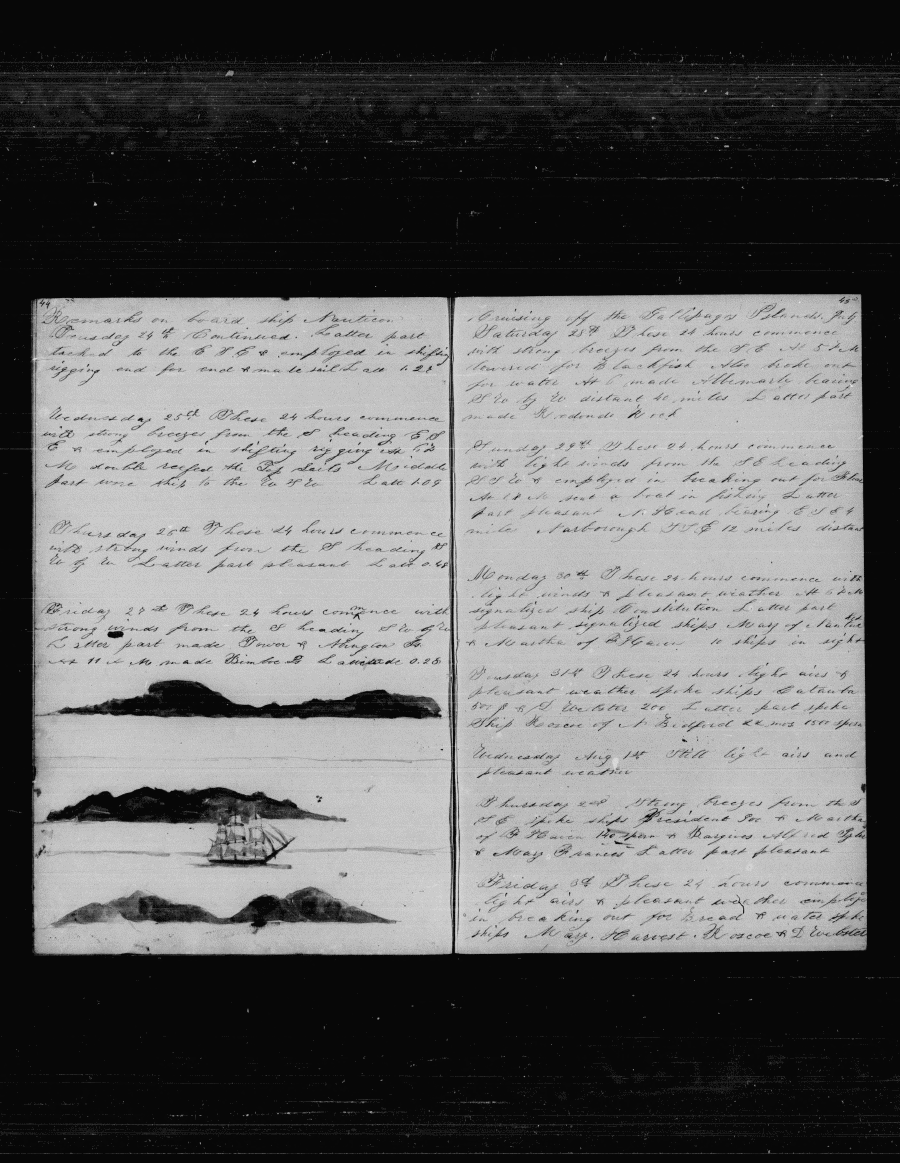 44
Remarks on board ship Nauticon
Teusday 24th Continued. Latter part
tacked to the E S E & employed in shifting
rigging end for end & male sail Latt 1.28
Wednesday 25th These 24 hours commence
with strong breezes from the S heading E S
E & employed in shifting rigging At
M double reefed the Top Sails Middle
part wore ship to the W S W Latt 1.09
Thursday 26th These 24 hours commence
with strong winds from the S heading S
W by W Latter part pleasant Latt 0.48
Friday 27th These 24 hours commence with
strong winds from the S heading S W by W
Latter part made Tower & Abington Is
At 11 A M made Bindoe Is Lattitude 0.28
45
Cruising off the Gallipagos Islands. July
Saturday 28th These 24 hours commence
with strong breezes from the S E At 5 P M
lowered for Blackfish Also broke out
for water At 6 made Albemarle bearing
S W by W distant 40 miles Latter part
made Rodondo Rock
Sunday 29th These 24 hours commence
with light winds from the S E heading
S S W & employed in breaking out for
At 18 M sent a boat in fishing Latter
part pleasant N. Head bearing E S E 4
miles Narborough S S E 12 miles distant
Monday 30th These 24 hours commence with
light winds & pleasant weather At 6 P M
signalized ship Constitution Latter part
pleasant signalized ships Mary of Nantucket
& Martha of F Haven 10 ships in sight
Teusday 31st These 24 hours light airs &
pleasant weather spoke ships Catawba
500 & D Webster 200 Latter part spoke
Ship Roscoe of N. Bedford 22 mos 1500 sperm
Wednesday Aug 1st Still light airs and
pleasant weather
Thursday 2nd Strong breezes from the S
S E spoke ships President 800 & Martha
of F Haven 140 sperm & Barques Alfred Tyler
& Mary Frances Latter part pleasant
Friday 3d These 24 hours commence
light airs & pleasant weather employed
in breaking out for Bread & water spoke
ships Mary. Harvest. Roscoe & D Webster